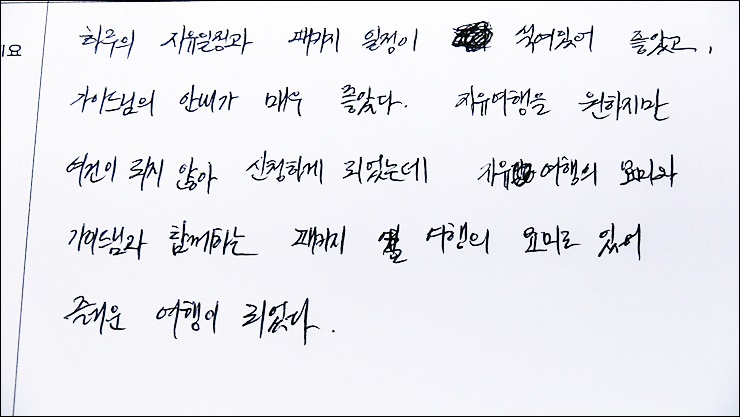 하루의 자유일정과 패키지 일정이 섞여있어 좋았고,
가이드님의 안내가 매우 좋았다. 자유여행을 원하지만
여건이 되지 않아 신청하게 되었는데 자유여행의 묘미와
가이드님과 함께하는 패키지 여행의 묘미도 있어
즐거운 여행이 되었다.